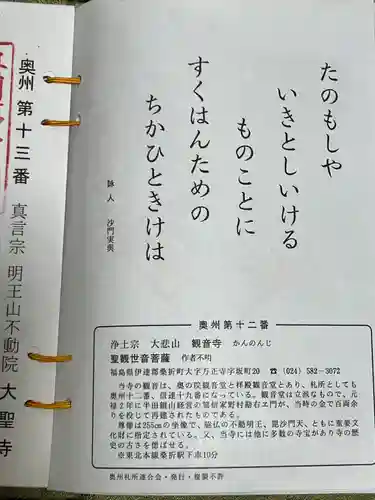 たのもしや
いきとしいける
ものことに
すくはんための
ちかひときけは
詠人 沙門実興
奥州第十二番
浄土宗 大悲山 観音寺 かんのんじ
聖観世音菩薩 作者不明
福島県伊達郡桑折町大字万正寺字坂町20 ☎ (024) 582-3072
当寺の観音は、奥の院観音堂と拝殿観音堂とあり、札所としても
奥州十二番、信達十九番になっている。観音堂は立派なもので、元
禄2年に半田銀山経営の第信家野村勘右ヱ門が、当時の金で百両余
りを投じて再建されたものである。
尊像は255㎝の坐像で、脇仏の不動明王、毘沙門天、ともに重要文
化財に指定されている。又、当寺には他に多数の寺宝があり寺の歴
史の古さを偲ばせる。
※東北本線桑折駅下車10分
奥州札所連合会・発行・複製不許
奥州 第十三番 真言宗 明王山不動院 大聖寺